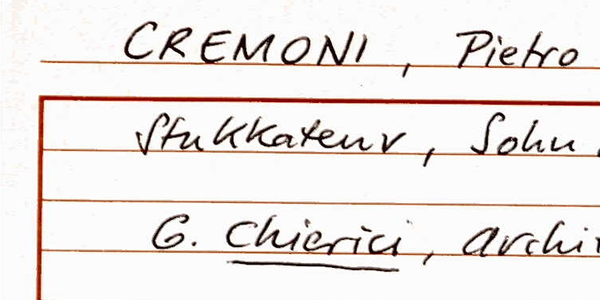 CREMONI, Pietro
Stukkateur, Sohn
G. Chierici, archi